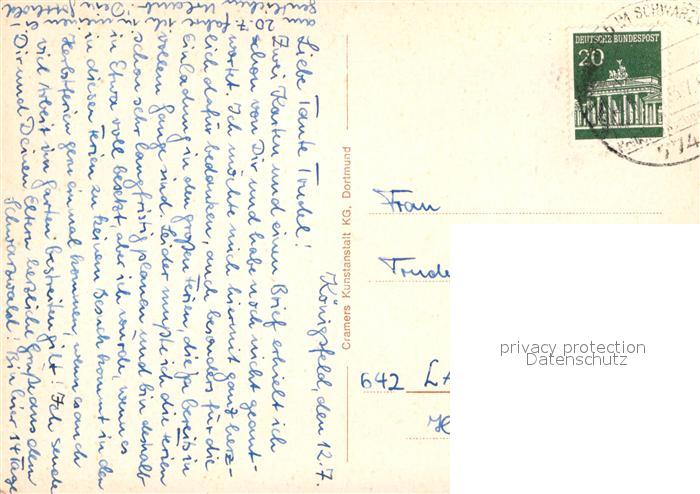 Königsfeld, den 12.7.
Liebe Tante Trudel!
Zwei Karten und einen Brief erhielt ich
schon von Dir und habe noch nicht geant-
wortet. Ich möchte mich hiermit ganz herz-
lich dafür bedanken, auch besonders für die
Einladung in den großen Ferien, die ja bereits in
vollem Gange sind. Leider mußte ich die Ferien
schon sehr langfristig planen und bin deshalb
in Etwa voll besetzt, aber ich würde, wenn es
in diesen Ferien zu keinem Besuch kommt in den
Herbstferien gern einmal kommen, wenn es auch
viel Arbeit im Garten zu bestreiten gilt! Ich sende
Dir und Deinen Eltern herzliche Grüße aus dem
Schwarzwald! Bin hier 14 Tage
20.7.
Cramers Kunstanstalt KG, Dortmund
IM SCHWARZ
774
DEUTSCHE BUNDESPOST
20
Frau
Trude
642 LA
privacy protection
Datenschutz